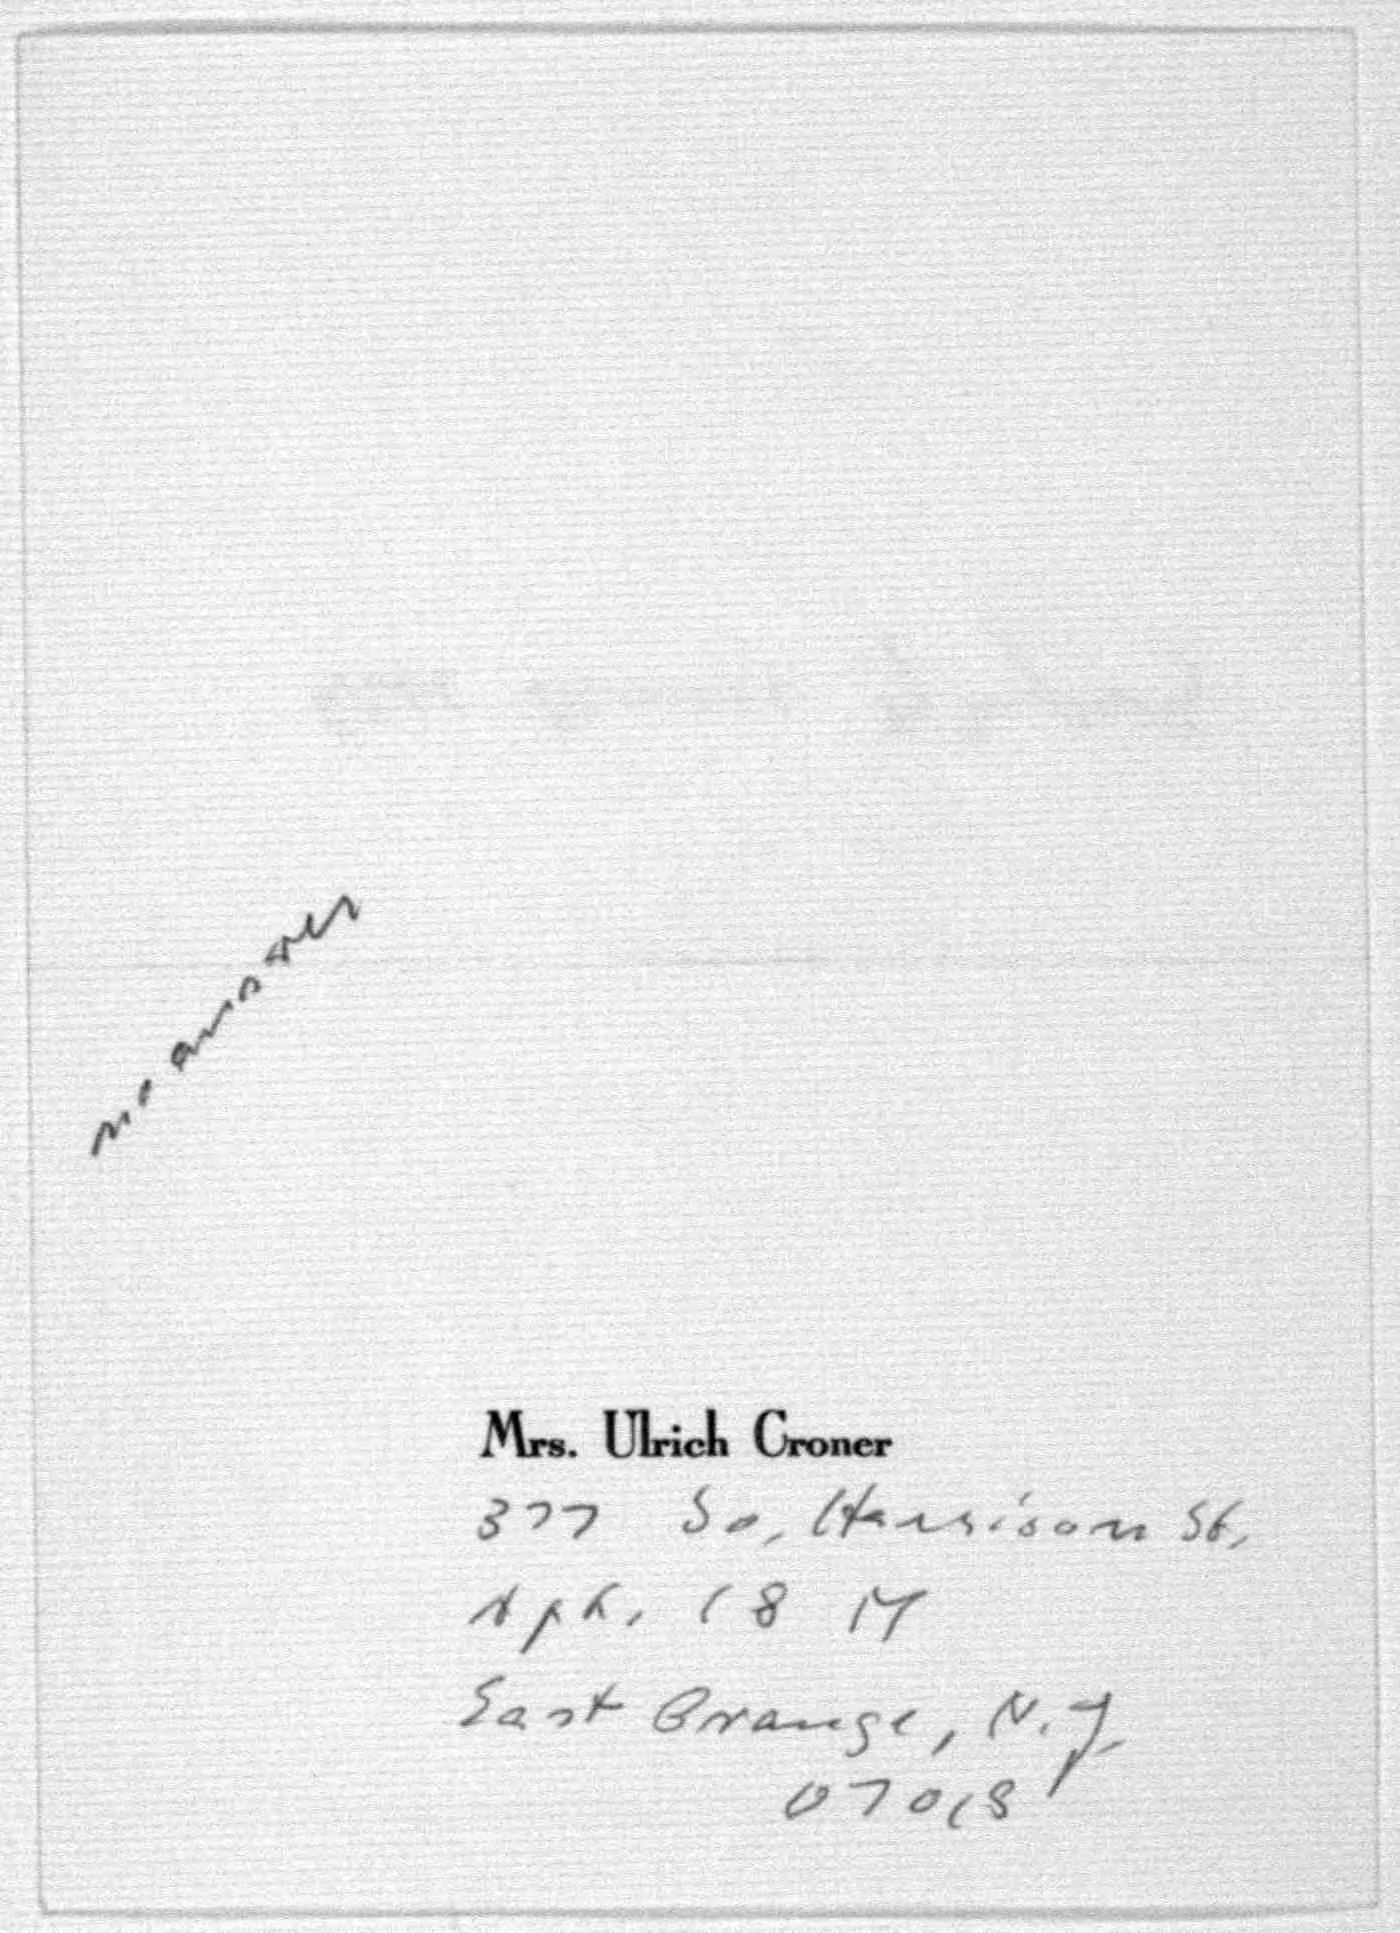 no answer
Mrs. Ulrich Croner
377 So. Harrison St.
Apt. 18 M
East Orange, N.J.
07018